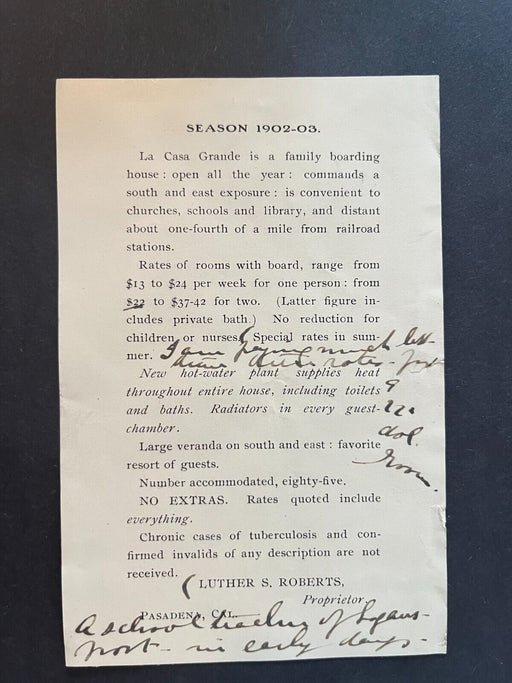 SEASON 1902-03.
La Casa Grande is a family boarding
house : open all the year : commands a
south and east exposure : is convenient to
churches, schools and library, and distant
about one-fourth of a mile from railroad
stations.
Rates of rooms with board, range from
$13 to $24 per week for one person : from
$22 to $37-42 for two. (Latter figure in-
cludes private bath.) No reduction for
children or nurses. Special rates in sum-
mer. I am paying much less
than these rates - for
New hot-water plant supplies heat
throughout entire house, including toilets
and baths. Radiators in every guest-
chamber.
dol.
room.
Large veranda on south and east : favorite
resort of guests.
Number accommodated, eighty-five.
NO EXTRAS. Rates quoted include
everything.
Chronic cases of tuberculosis and con-
firmed invalids of any description are not
received.
LUTHER S. ROBERTS,
Proprietor.
PASADENA, CAL.
A school teacher of Logans-
port - in early days -